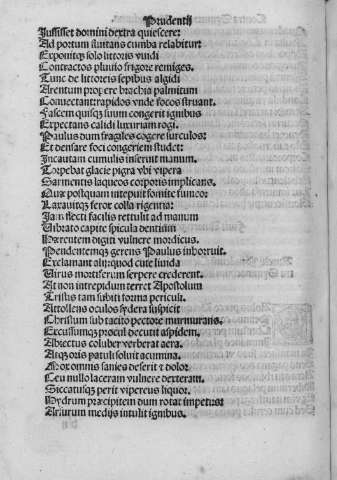 Prudentij
Iussisset domini dextra quiescere:
Ad portum fluitans cumba relabitur:
Exponitque solo littoris vuidi
Contractos pluuio frigore remiges.
Tunc de littoreis sepibus algidi
Arentum propere brachia palmitum
Conuectant: rapidos vnde focos struant.
Fascem quisque suum congerit ignibus
Expectans calidi luxuriam rogi.
Paulus dum fragiles cogere surculos:
Et densare foci congeriem studet:
Incautam cumulis inserit manum.
Torpebat glacie pigra vbi vipera
Sarmentis laqueos corporis implicans.
Quæ postquam intepuit fomite fumeo:
Laxauitque ferox colla rigentia:
Iam flecti facilis rettulit ad manum
Vibrato capite spicula dentium
Hærentem digiti vulnere mordicus.
Pendentemque gerens Paulus inhorruit.
Exclamant alij: quod cute liuida
Virus mortiferum serpere crederent.
At non intrepidum terret Apostolum
Tristis tam subiti forma periculi.
Attollens oculos sydera suspicit
Christum sub tacito pectore murmurans.
Excussumque procul discutit aspidem.
Abiectus coluber verberat aera.
Atque oris patuli soluit acumina.
Mox omnis sanies deserit & dolor
Ceu nullo laceram vulnere dexteram.
Siccatusque perit vipereus liquor.
Hydrum præcipitem dum rotat impetus:
Arsurum medijs intulit ignibus.